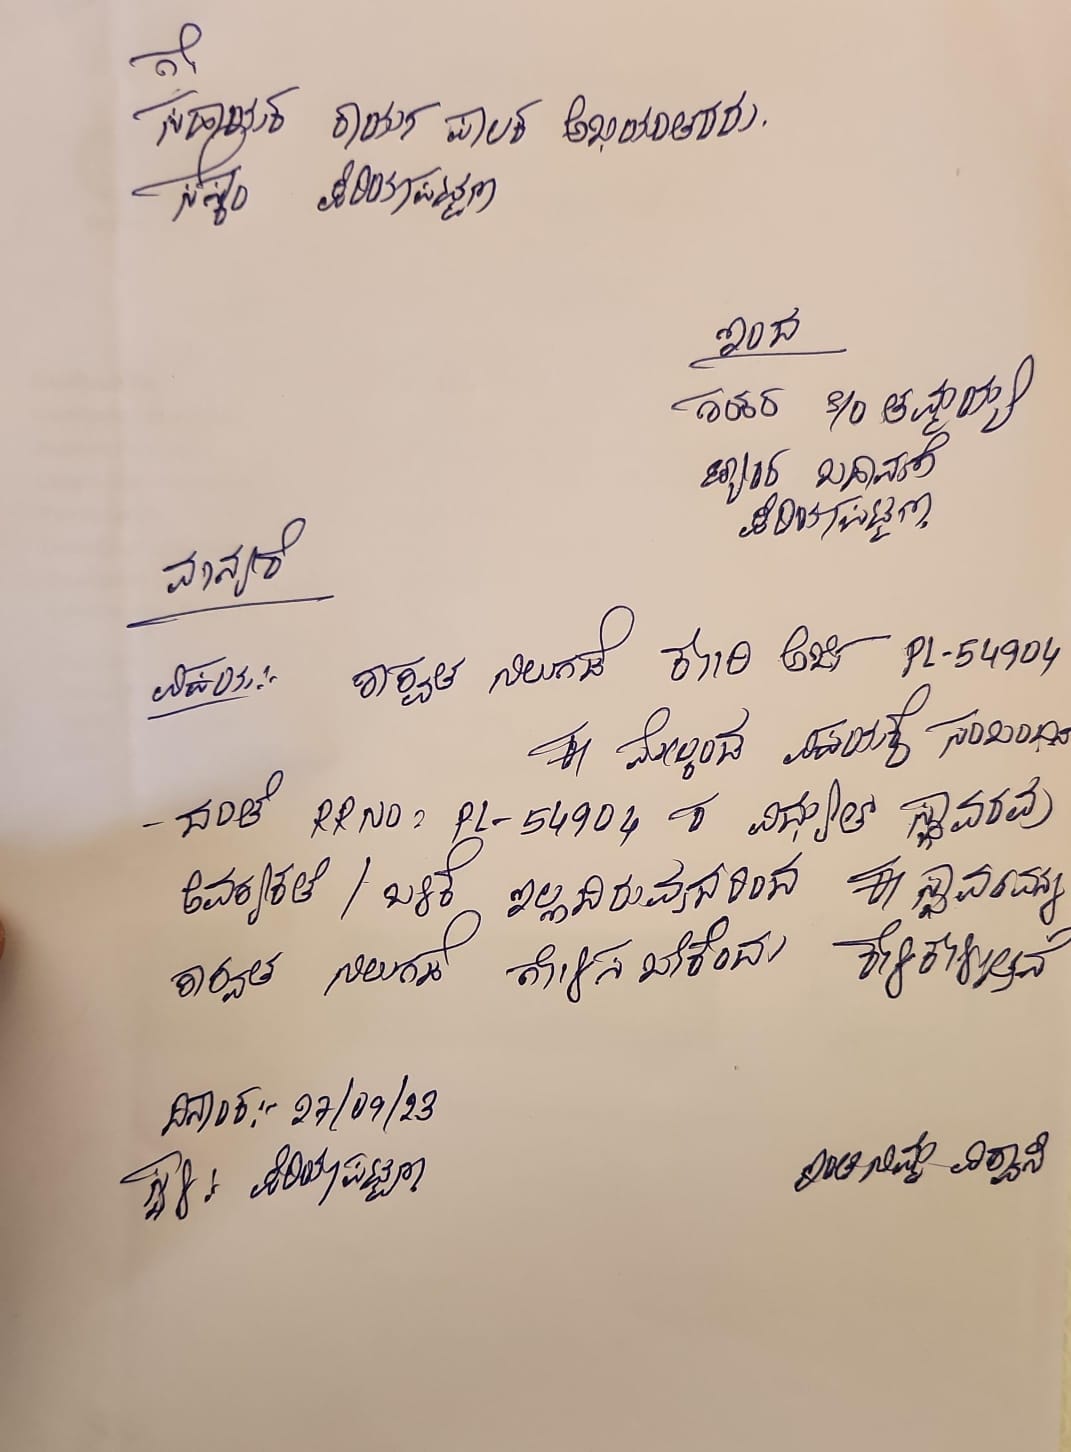 ಗೆ
ಸಹಾಯಕ ಕಾರ್ಯ ಪಾಲಕ ಅಭಿಯಂತರರು.
ಸೆಸ್ಕಂ ಪಿರಿಯಾಪಟ್ಟಣ
ಇಂದ
S/o ತಮ್ಮಯ್ಯ
ಪಿರಿಯಾಪಟ್ಟಣ.
ಮಾನ್ಯರೆ
ವಿಷಯ:- ಶಾಶ್ವತ ನಿಲುಗಡೆ ಕೋರಿ ಅರ್ಜಿ PL-54904
ಈ ಮೇಲ್ಕಂಡ ವಿಷಯಕ್ಕೆ ಸಂಬಂಧಿಸಿ
- ದಂತೆ RR NO: PL-54904 ರ ವಿದ್ಯುತ್ ಸ್ಥಾವರವು
ಅವಶ್ಯಕತೆ / ಬಳಕೆ ಇಲ್ಲದಿರುವುದರಿಂದ ಈ ಸ್ಥಾವರವನ್ನು
ಶಾಶ್ವತ ನಿಲುಗಡೆ ಗೊಳಿಸಬೇಕೆಂದು ಕೇಳಿಕೊಳ್ಳುತ್ತೇನೆ
ದಿನಾಂಕ:- 27/09/23
ಸ್ಥಳ: ಪಿರಿಯಾಪಟ್ಟಣ
ಇಂತಿ ನಿಮ್ಮ ವಿಶ್ವಾಸಿ